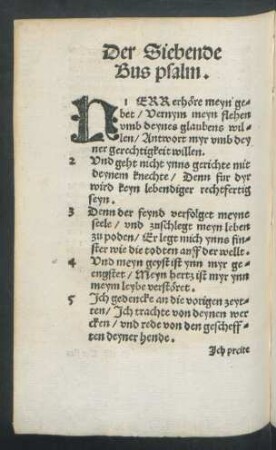 Der Siebende
Bus psalm.
1 ERR erhöre meyn ge-
bet / Vernym meyn flehen
vmb deynes glaubens wil-
len / Antwort myr vmb dey
ner gerechtigkeit willen.
2 Vnd geht nicht ynns gerichte mit
deynem knechte / Denn für dyr
wird keyn lebendiger rechtfertig
seyn.
3 Denn der feynd verfolget meyne
seele / vnd zuschlegt meyn leben
zu poden / Er legt mich ynns fin-
ster wie die todten auff der wellt.
4 Vnd meyn geyst ist ynn myr ge-
engstet / Meyn hertz ist myr ynn
meym leybe verstöret.
5 Ich gedencke an die vorigen zeyt-
ten / Ich trachte von deynen wer
cken / vnd rede von den gescheff-
ten deyner hende.
Ich preite